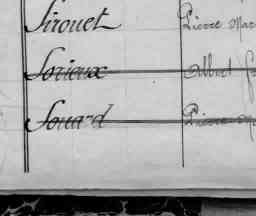 Sirouet Pierre Mar
Sorieux Albert
Souard Pierre